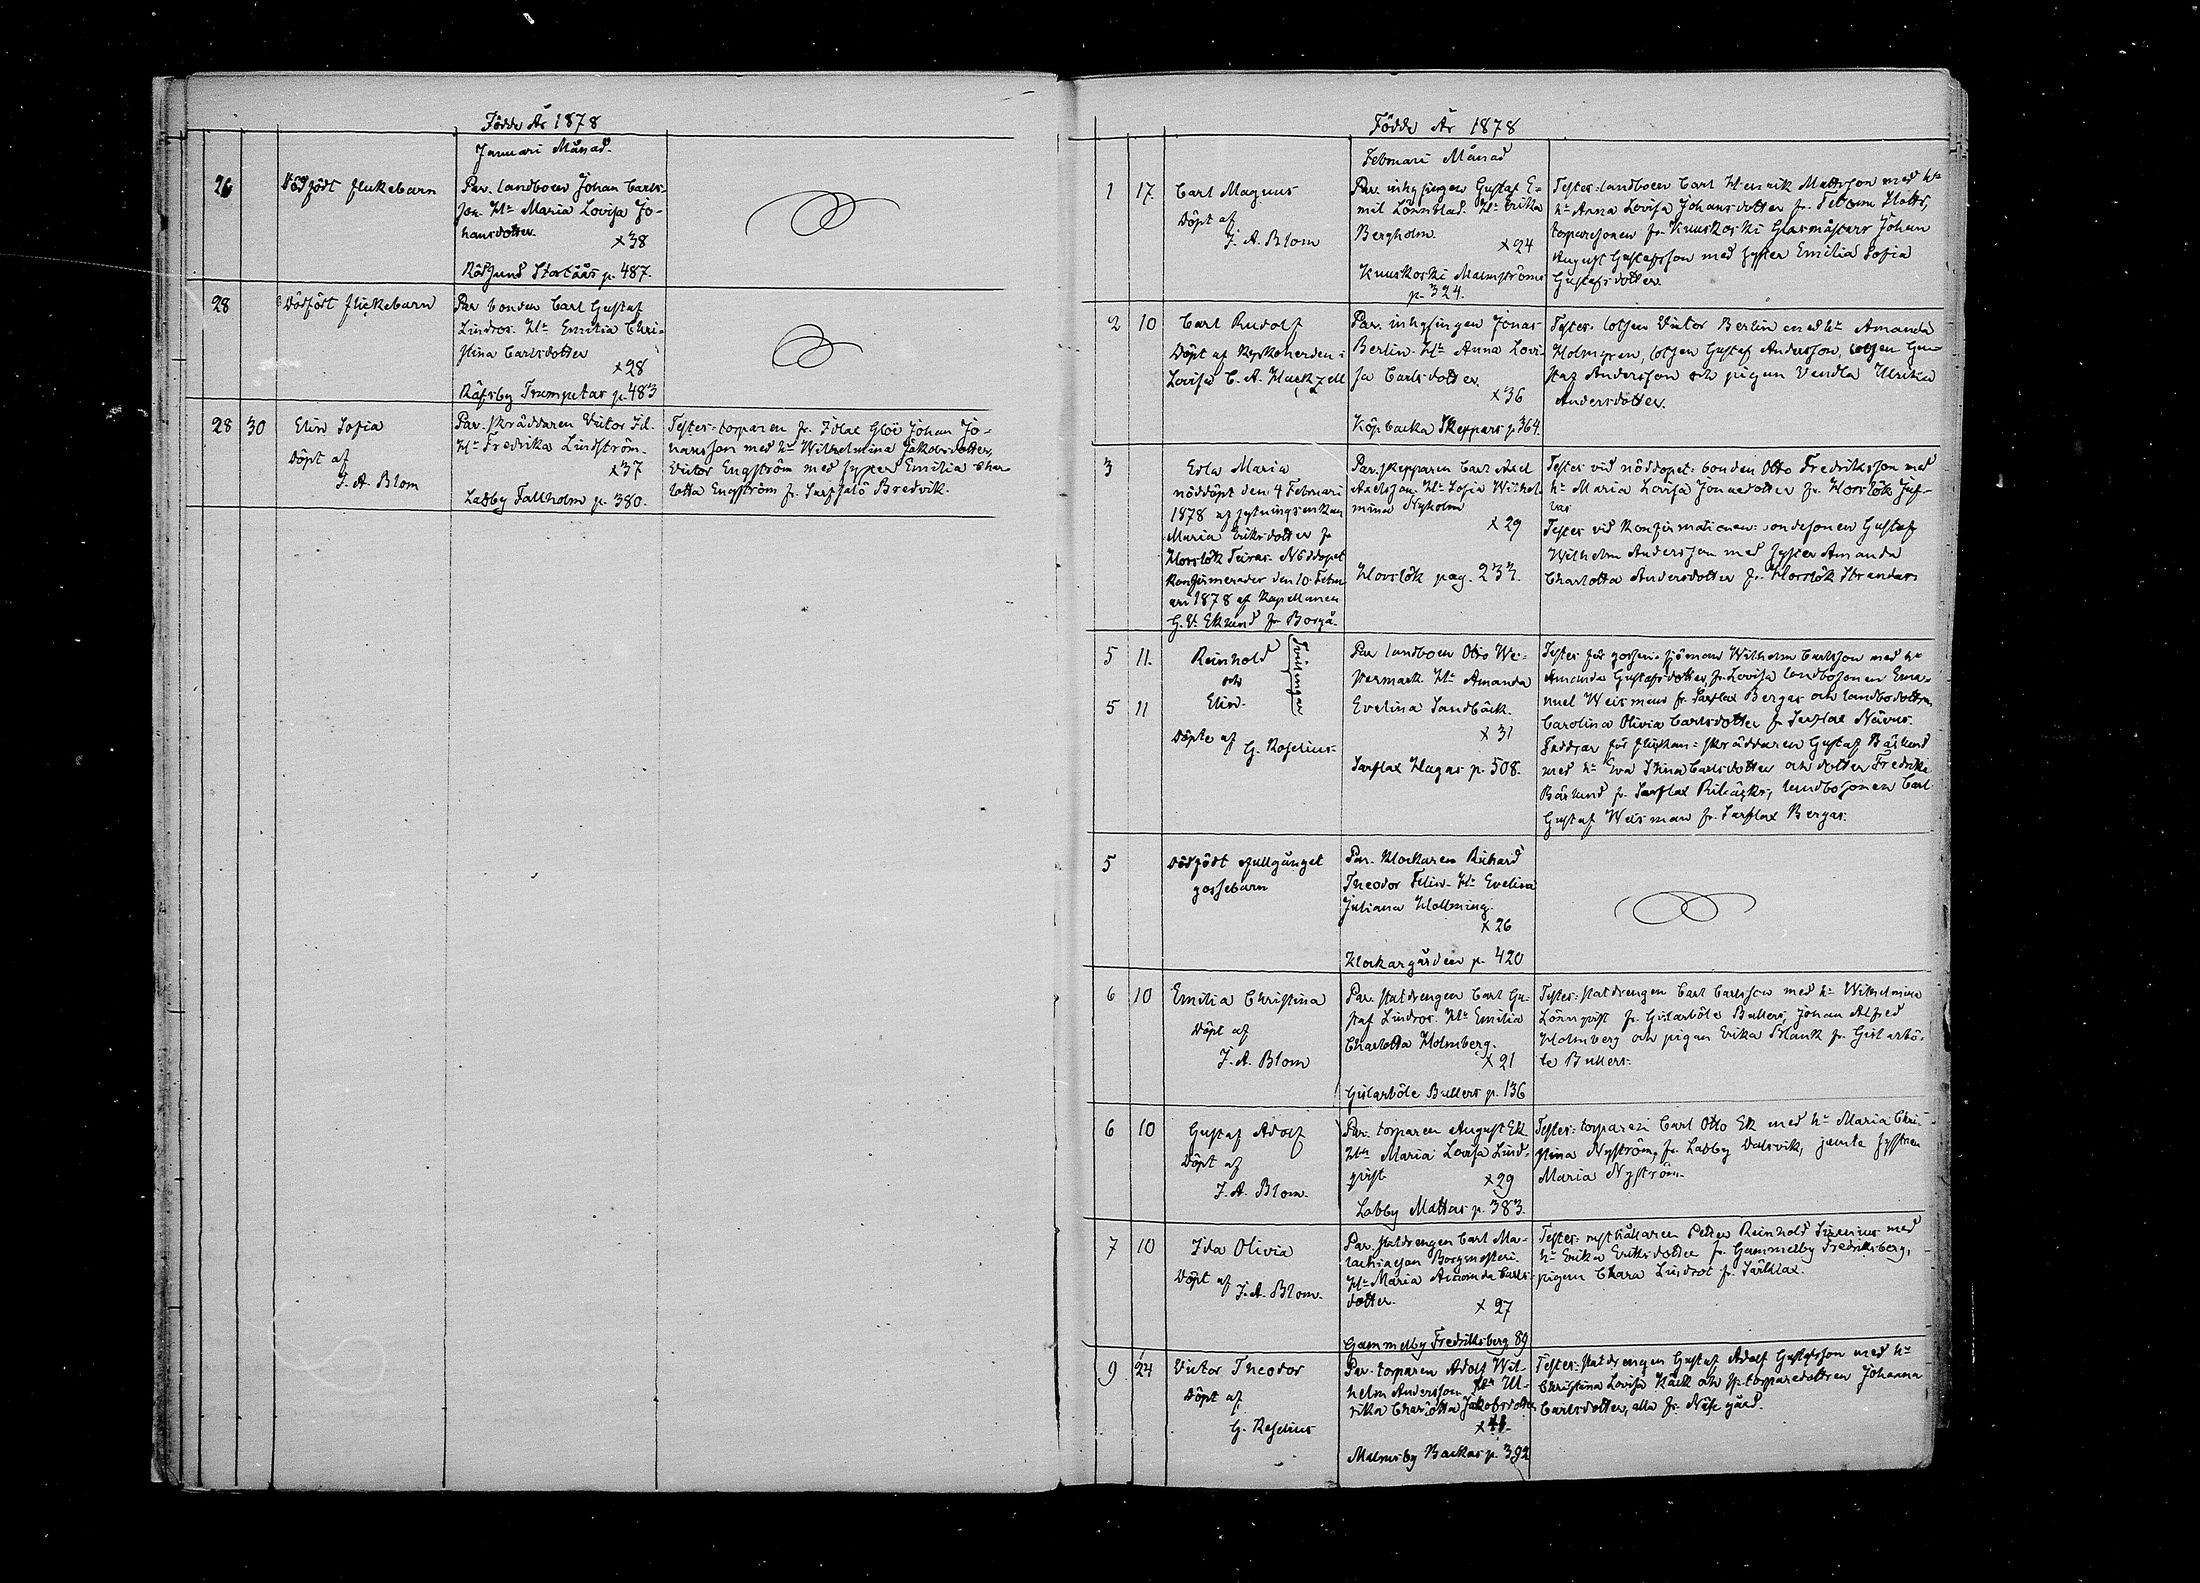 Födde År 1878
Januari Månad.
26 Dödfödt flickebarn
Par. landboen Johan Carls-
son. H:u Maria Lovisa Jo-
hansdotter.
x38
Rödsund Storåårs p. 487.
28 Dödfödt flickebarn
Par bonden Carl Gustaf
Lindros. H:u Emilia Chri-
stina Carlsdotter
x28
Räfsby Trumpetar p. 483
28 30 Elin Sofia
Döpt af
J. A. Blom
Par. skräddaren Victor
H:u Fredrika Lindström.
x37
Labby Fallholm p. 380.
Testes: torparen fr. Johan Jo-
hansson med h:u Wilhelmina Jakobsdotter,
Victor Engström med syster Emilia Char-
lotta Engström fr. Sarfsalö Bredvik.
Födde År 1878
Februari Månad
1 17. Carl Magnus
Döpt af
J. A. Blom
Par. inhysingen Gustaf E-
mil Lönnblad. H:u Erika
Bergholm.
x24
Kuuskoski Malmströms
p. 324.
Testes: landboen Carl Henrik Mattsson med h:u
h:u Anna Lovisa Johansdotter fr.
torparesonen fr. Kuuskoski Glasmästars Johan
August Gustafsson med syster Emilia Sofia
Gustafsdotter.
2 10 Carl Rudolf
Döpt af Kyrkoherden i
Lovisa C. A.
Par. inhysingen Jonas
Berlin. H:u Anna Lovi-
sa Carlsdotter.
x36
Köpbacka Skeppars p 364.
Testes: lotsen Victor Berlin med h:u Amanda
Holmgren, lotsen Gustaf Andersson, lotsen Gu-
staf Andersson och pigan Vendla Ulrika
Andersdotter.
3 Erla Maria
nöddöpt den 4 Februari
1878 af sytningsenkan
Maria Eriksdotter fr
Horslök Nöddopet
konfirmerades den 10 Febru
ari 1878 af Kapellanen
G. V. Eklund fr Borgå.
Par. skepparen Carl Axel
Axelsson. H:u Sofia Wilhel
mina Nyholm
x29
Horslök pag. 233.
Testes vid nöddopet: bonden Otto Fredriksson med
h:u Maria Lovisa Jonnedotter fr. Horslök Juf-
vas
Testes vid konfirmationen: bondesonen Gustaf
Wilhelm Andersson med syster Amanda
Charlotta Andersdotter fr. Horslök Strandars
5 11. Reinhold
och
5 11 Elin.
Tvillingar
Döpte af G. Roselius
Par landboen Otto We-
stermark H:u Amanda
Evelina Sandbäck.
x31
Sarflax Hagas p. 508.
Testes för gossen: sjöman Wilhelm Carlsson med h:u
Amanda Gustafsdotter, fr. Lovisa landbosonen Ema-
nuel Weisman fr. Sarflax Bergas och landbodottren
Carolina Olivia Carlsdotter fr Sarflax Nävars.
Faddrar för flickan: skräddaren Gustaf Bärlund
med h:u Eva Stina Carlsdotter och dotter Fredrika
Bärlund fr. Sarflax landbosonen Carl
Gustaf Weisman fr. Sarflax Bergas.
5 Dödfödt ofullgånget
gossebarn
Par. Klockaren Richard
Theodor Felin. H:u Evelina
Juliana Hollming.
x26
Klockargården p. 420
6 10 Emilia Christina
Döpt af
J. A. Blom
Par. statdrengen Carl Gu-
staf Lindros. H:u Emilia
Charlotta Holmberg.
x21
Gislarböle Bullers p. 136
Testes: statdrengen Carl Carlsson med h:u Wilhelmina
Lönnqvist fr. Gislarböle Bullers, Johan Alfred
Holmberg och pigan Erika Blank fr. Gislarbö-
le Bullers.
6 10 Gustaf Adolf
Döpt af
J. A. Blom.
Par. torparen August Ek
H:u Maria Lovisa Lind-
qvist
x29
Labby Mattas p. 383.
Testes: torparen Carl Otto Ek med h:u Maria Chri-
stina Nyström, fr. Labby Dalsvik, jemte systren
Maria Nyström.
7 10 Ida Olivia
Döpt af J. A. Blom.
Par. statdrengen Carl Ma-
lachiasson
H:u Maria Amanda Carls-
dotter.
x 27
Gammelby Fredriksberg 89
Testes: mjsthållaren Petter Reinhold Sirenius med
h:u Erika Eriksdotter fr. Gammelby Fredriksberg,
pigan Clara Lindros fr. Särklax.
9 24 Victor Theodor
Döpt af
G. Roselius
Par. torparen Adolf Wil-
helm Andersson H:u Ul-
rika Charlotta Jakobsdotter
x41.
Malmsby Backas p. 392
Testes: statdrengen Gustaf Adolf Gustafsson med h:u
Christina Lovisa Käck och sp. torparedottren Johanna
Carlsdotter, alla fr. Näse gård.